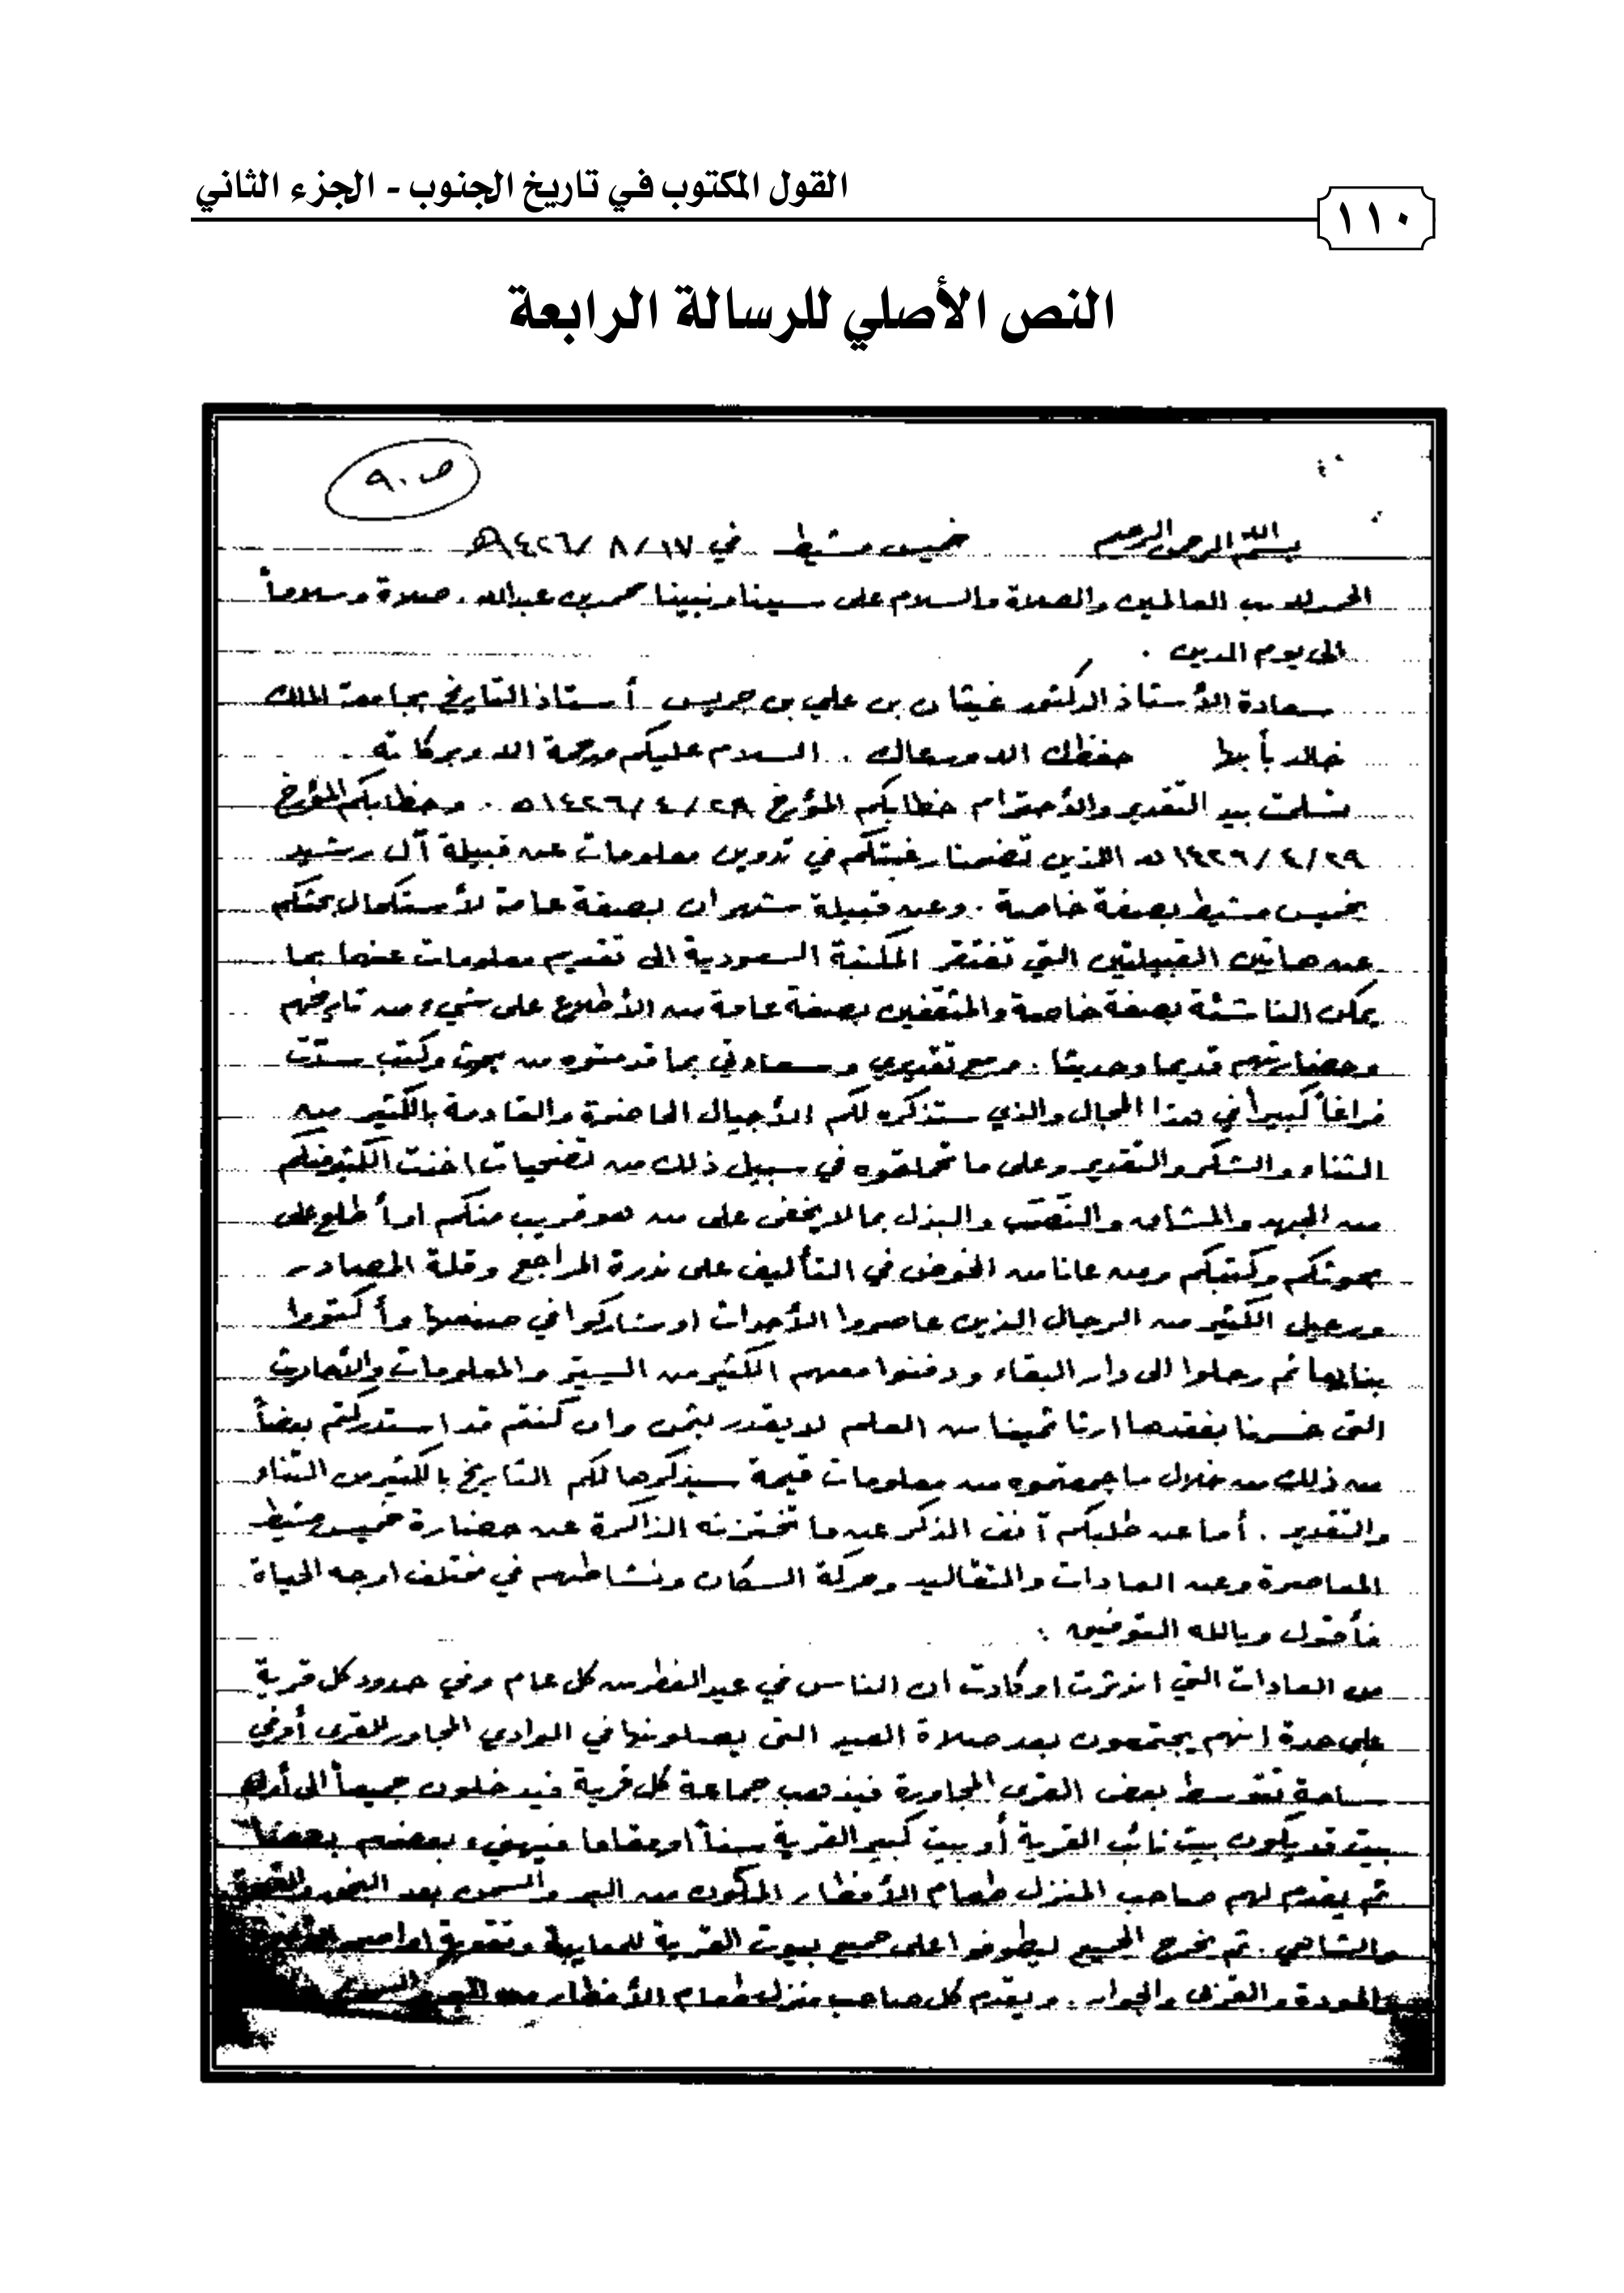 القول المكتوب في تاريخ الجنوب - الجزء الثاني
١١٠
النص الأصلي للرسالة الرابعة
ص ٩٠
بسم الله الرحمن الرحيم خميس مشيط في ١٧/ ٨/ ١٤٢٦هـ
الحمد لله رب العالمين والصلاة والسلام على سيدنا ونبينا محمد بن عبدالله . صلاة وسلاماً
الى يوم الدين .
سعادة الأستاذ الدكتور غيثان بن علي بن جريس أستاذ التاريخ بجامعة الملك
خالد بأبها حفظك الله ورعاك . السلام عليكم ورحمة الله وبركاته .
تسلمت بيد التقدير والأحترام خطابكم المؤرخ ٢٨/ ٤/ ١٤٢٦هـ . وخطابكم المؤرخ
٢٩/ ٤/ ١٤٢٦هـ اللذين تضمنا رغبتكم في تدوين معلومات عن قبيلة آل رشيد
بخميس مشيط بصفة خاصة . وعن قبيلة شهران بصفة عامة لأستكمال بحثكم
عن هاتين القبيلتين التي تفتقر المكتبة السعودية الى تقديم معلومات عنهما بما
يمكن الناشئة بصفة خاصة والمثقفين بصفة عامة من الأطلاع على شيء من تاريخهم
وحضارتهم قديما وحديثا . ومع تقديري وسعادتي بما قدمتوه من بحوث وكتب سدت
فراغاً كبيراً في هذا المجال والذي ستذكره لكم الأجيال الحاضرة والقادمة بالكثير من
الثناء والشكر والتقدير وعلى ما تحملتوه في سبيل ذلك من تضحيات اخذت الكثير منكم
من الجهد والمشاق والتعب والبذل بما لا يخفى على من هو قريب منكم او أطلع على
بحوثكم وكتبكم ومن عانا من الخوض في التأليف على ندرة المراجع وقلة المصادر
ورحيل الكثير من الرجال الذين عاصروا الأحداث او شاركوا في صنعها وأكتووا
بنارها ثم رحلوا الى دار البقاء ودفنوا معهم الكثير من السير والمعلومات والأحداث
التى خسرنا بفقدها ارثا ثمينا من العلم لا يقدر بثمن وان كنتم قد استدركتم بعضاً
من ذلك من خلال ما جمعتموه من معلومات قيمة سيذكرها لكم التاريخ بالكثير من الثناء
والتقدير . أما عن طلبكم آنف الذكر عن ما تختزنه الذاكرة عن حضارة خميس مشيط
المعاصرة وعن العادات والتقاليد وحركة السكان ونشاطهم في مختلف اوجه الحياة
فأقول وبالله التوفيق :
من العادات التي اندثرت او كادت ان الناس في عيد الفطر من كل عام وفي حدود كل قرية
على حدة انهم يجتمعون بعد صلاة العيد التى يصلونها في الوادي المجاور للقرى أوفي
ساحة تتوسط بعض القرى المجاورة فيذهب جماعة كل قرية فيدخلون جميعاً الى أول
بيت قد يكون بيت نائب القرية أو بيت كبير القرية سناً او مقاما فيهنيء بعضهم بعضا
ثم يقدم لهم صاحب المنزل طعام الأفطار المكون من البر والسمن بعد البخور والقهوة
والشاهي . ثم يخرج الجميع ليطوفوا على جميع بيوت القرية للمعايدة وتقوية اواصر
المودة والقربى والجوار . ويقدم كل صاحب منزل طعام الأفطار من البر والسمن